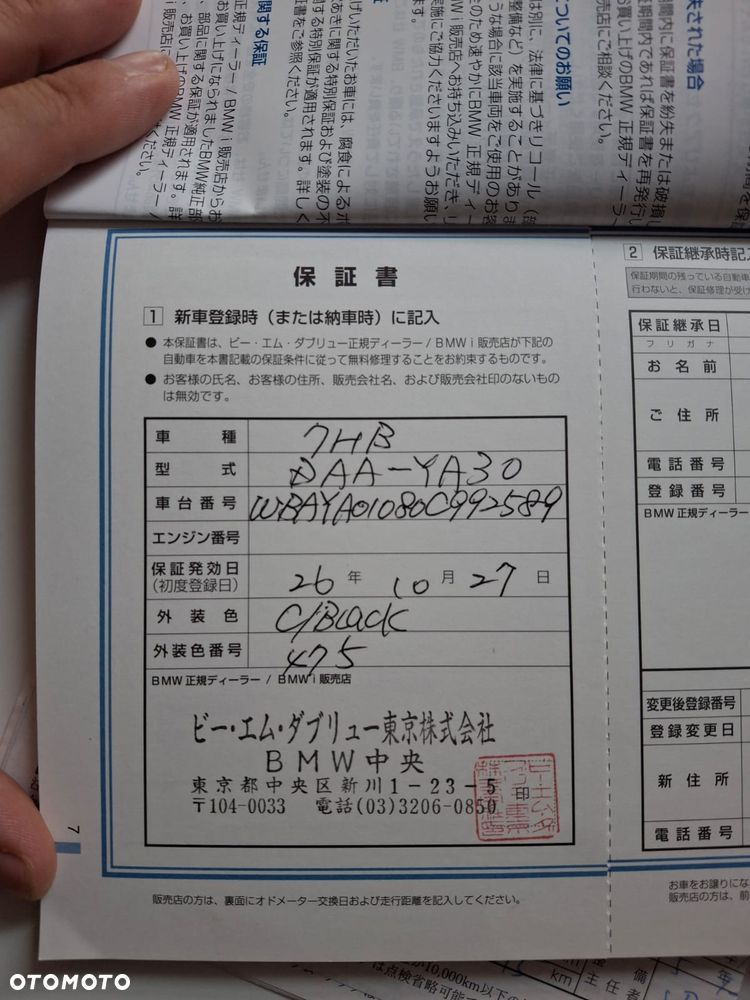 失された場合
間内に保証書を紛失または破損し
ついてのお願い
は別に、法律に基づきリコール（
整備など）を実施することがありま
うな場合に該当車両をご使用のお客
のため速やかにBMW 正規ディー
MW i 販売店へお持ち込みいただき、リ
実施にご協力くださいますようお願い
ます。
げいただいたお車には、腐食によるボ
あきに関する特別保証および塗装の不
する特別保証が適用されます。詳しく
証書をご参照ください。
関する保証
正規ディーラー / BMW i 販売店からお
い上げになられましたBMW純正部
、部品に関する保証が適用されます。詳
、お買い上げのBMW 正規ディーラー /
i 販売店に
ください。
保証書
1 新車登録時（または納車時）に記入
● 本保証書は、ビー・エム・ダブリュー正規ディーラー / BMW i 販売店が下記の
自動車を本書記載の保証条件に従って無料修理することをお約束するものです。
● お客様の氏名、お客様の住所、販売会社名、および販売会社印のないもの
は無効です。
車種 7HB
型式 DAA-YA30
車台番号 WBAYA01080C992589
エンジン番号
保証発効日
（初度登録日） 26 年 10 月 27 日
外装色 C/Black
外装色番号 475
BMW 正規ディーラー / BMW i 販売店
ビー・エム・ダブリュー東京株式会社
BMW中央
東京都中央区新川1-23-5
〒104-0033 電話(03)3206-0850
印
7
販売店の方は、裏面にオドメーター交換日および走行距離を記入してください。
2 保証継承時記
保証期間の残っている自動車
行わないと、保証修理が受け
保証継承日
フリガナ
お名前
ご住所
電話番号
登録番号
BMW 正規ディーラー
変更後登録番号
登録変更日
新住所
電話番号
お車をお譲りにな
販売店の方は、前
10,000km以下の
は点検省略可能で
km
km
主任者
OTOMOTO